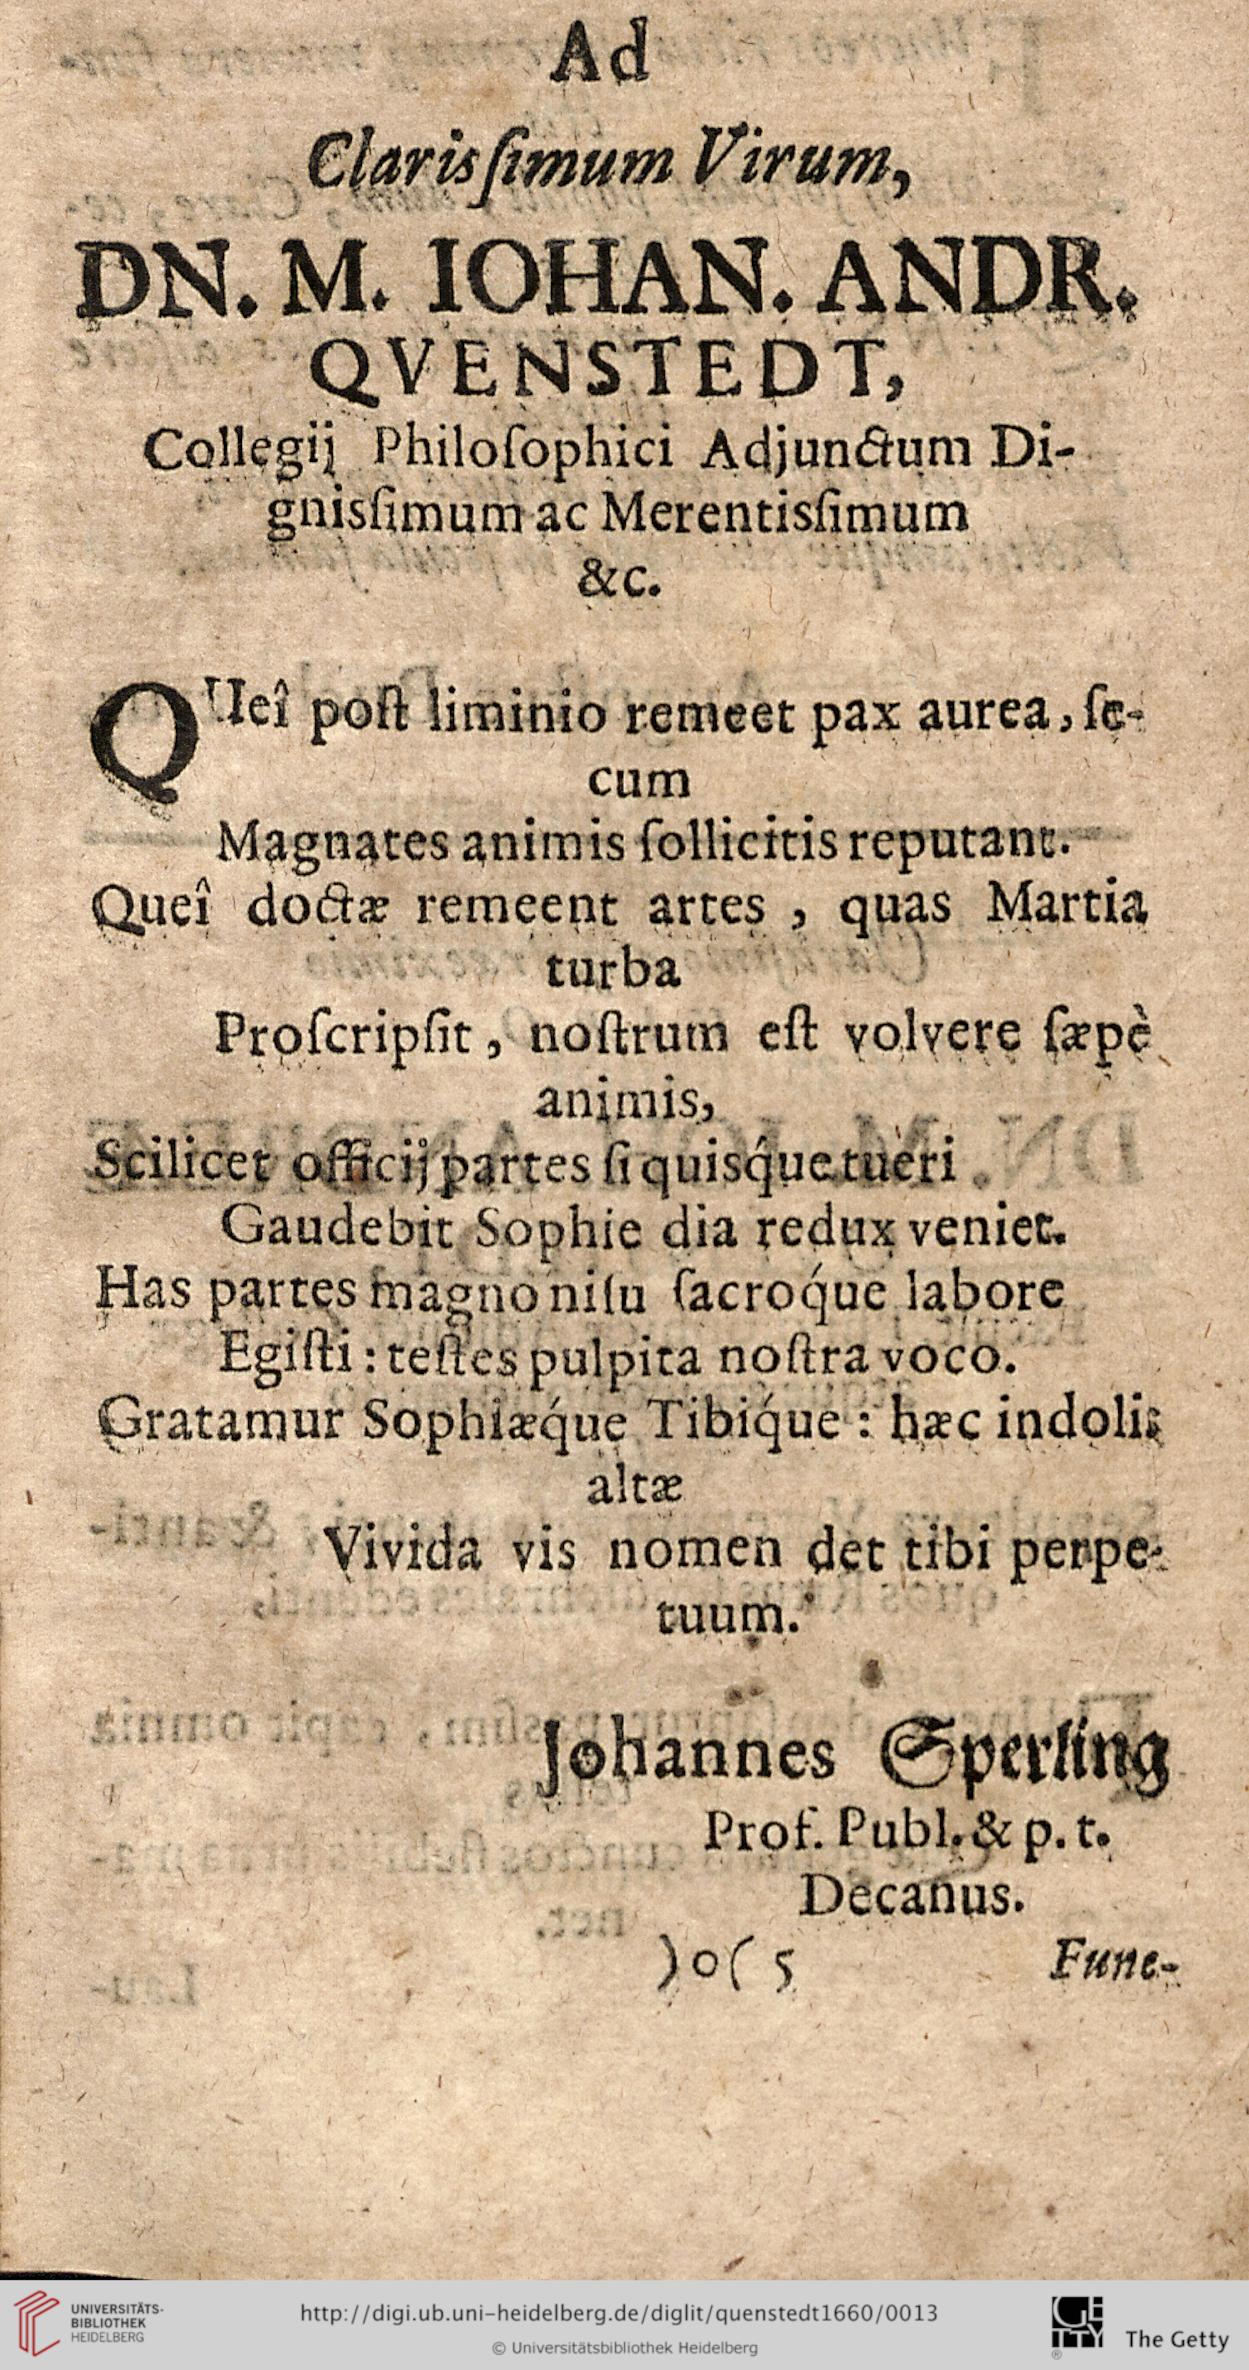 Ad
Clarisſimum Virum,
DN. M. IOHAN. ANDR.
QVENSTEDT,
Collegij Philoſophici Adjunctum Di-
gnisſimum ac Merentisſimum
&c.
QUeî poſt liminio remeet pax aurea, ſe-
cum
Magnates animis ſollicitis reputant.
Queî doctæ remeent artes, quas Martia
turba
Proſcripſit, noſtrum eſt volvere ſæpè
animis,
Scilicet officij partes ſi quisq́ue tueri
Gaudebit Sophie dia redux veniet.
Has partes magno niſu ſacroq́ue labore
Egiſti: teſtes pulpita noſtra voco.
Gratamur Sophiæq́ue Tibiq́ue: hæc indolis
altæ
Vivida vis nomen det tibi perpe-
tuum.
Johannes Sperling
Prof. Publ. & p. t.
Decanus.
)o( 5 Fune-
UNIVERSITÄTS-
BIBLIOTHEK
HEIDELBERG
http://digi.ub.uni-heidelberg.de/diglit/quenstedt1660/0013
© Universitätsbibliothek Heidelberg
GETTY
The Getty